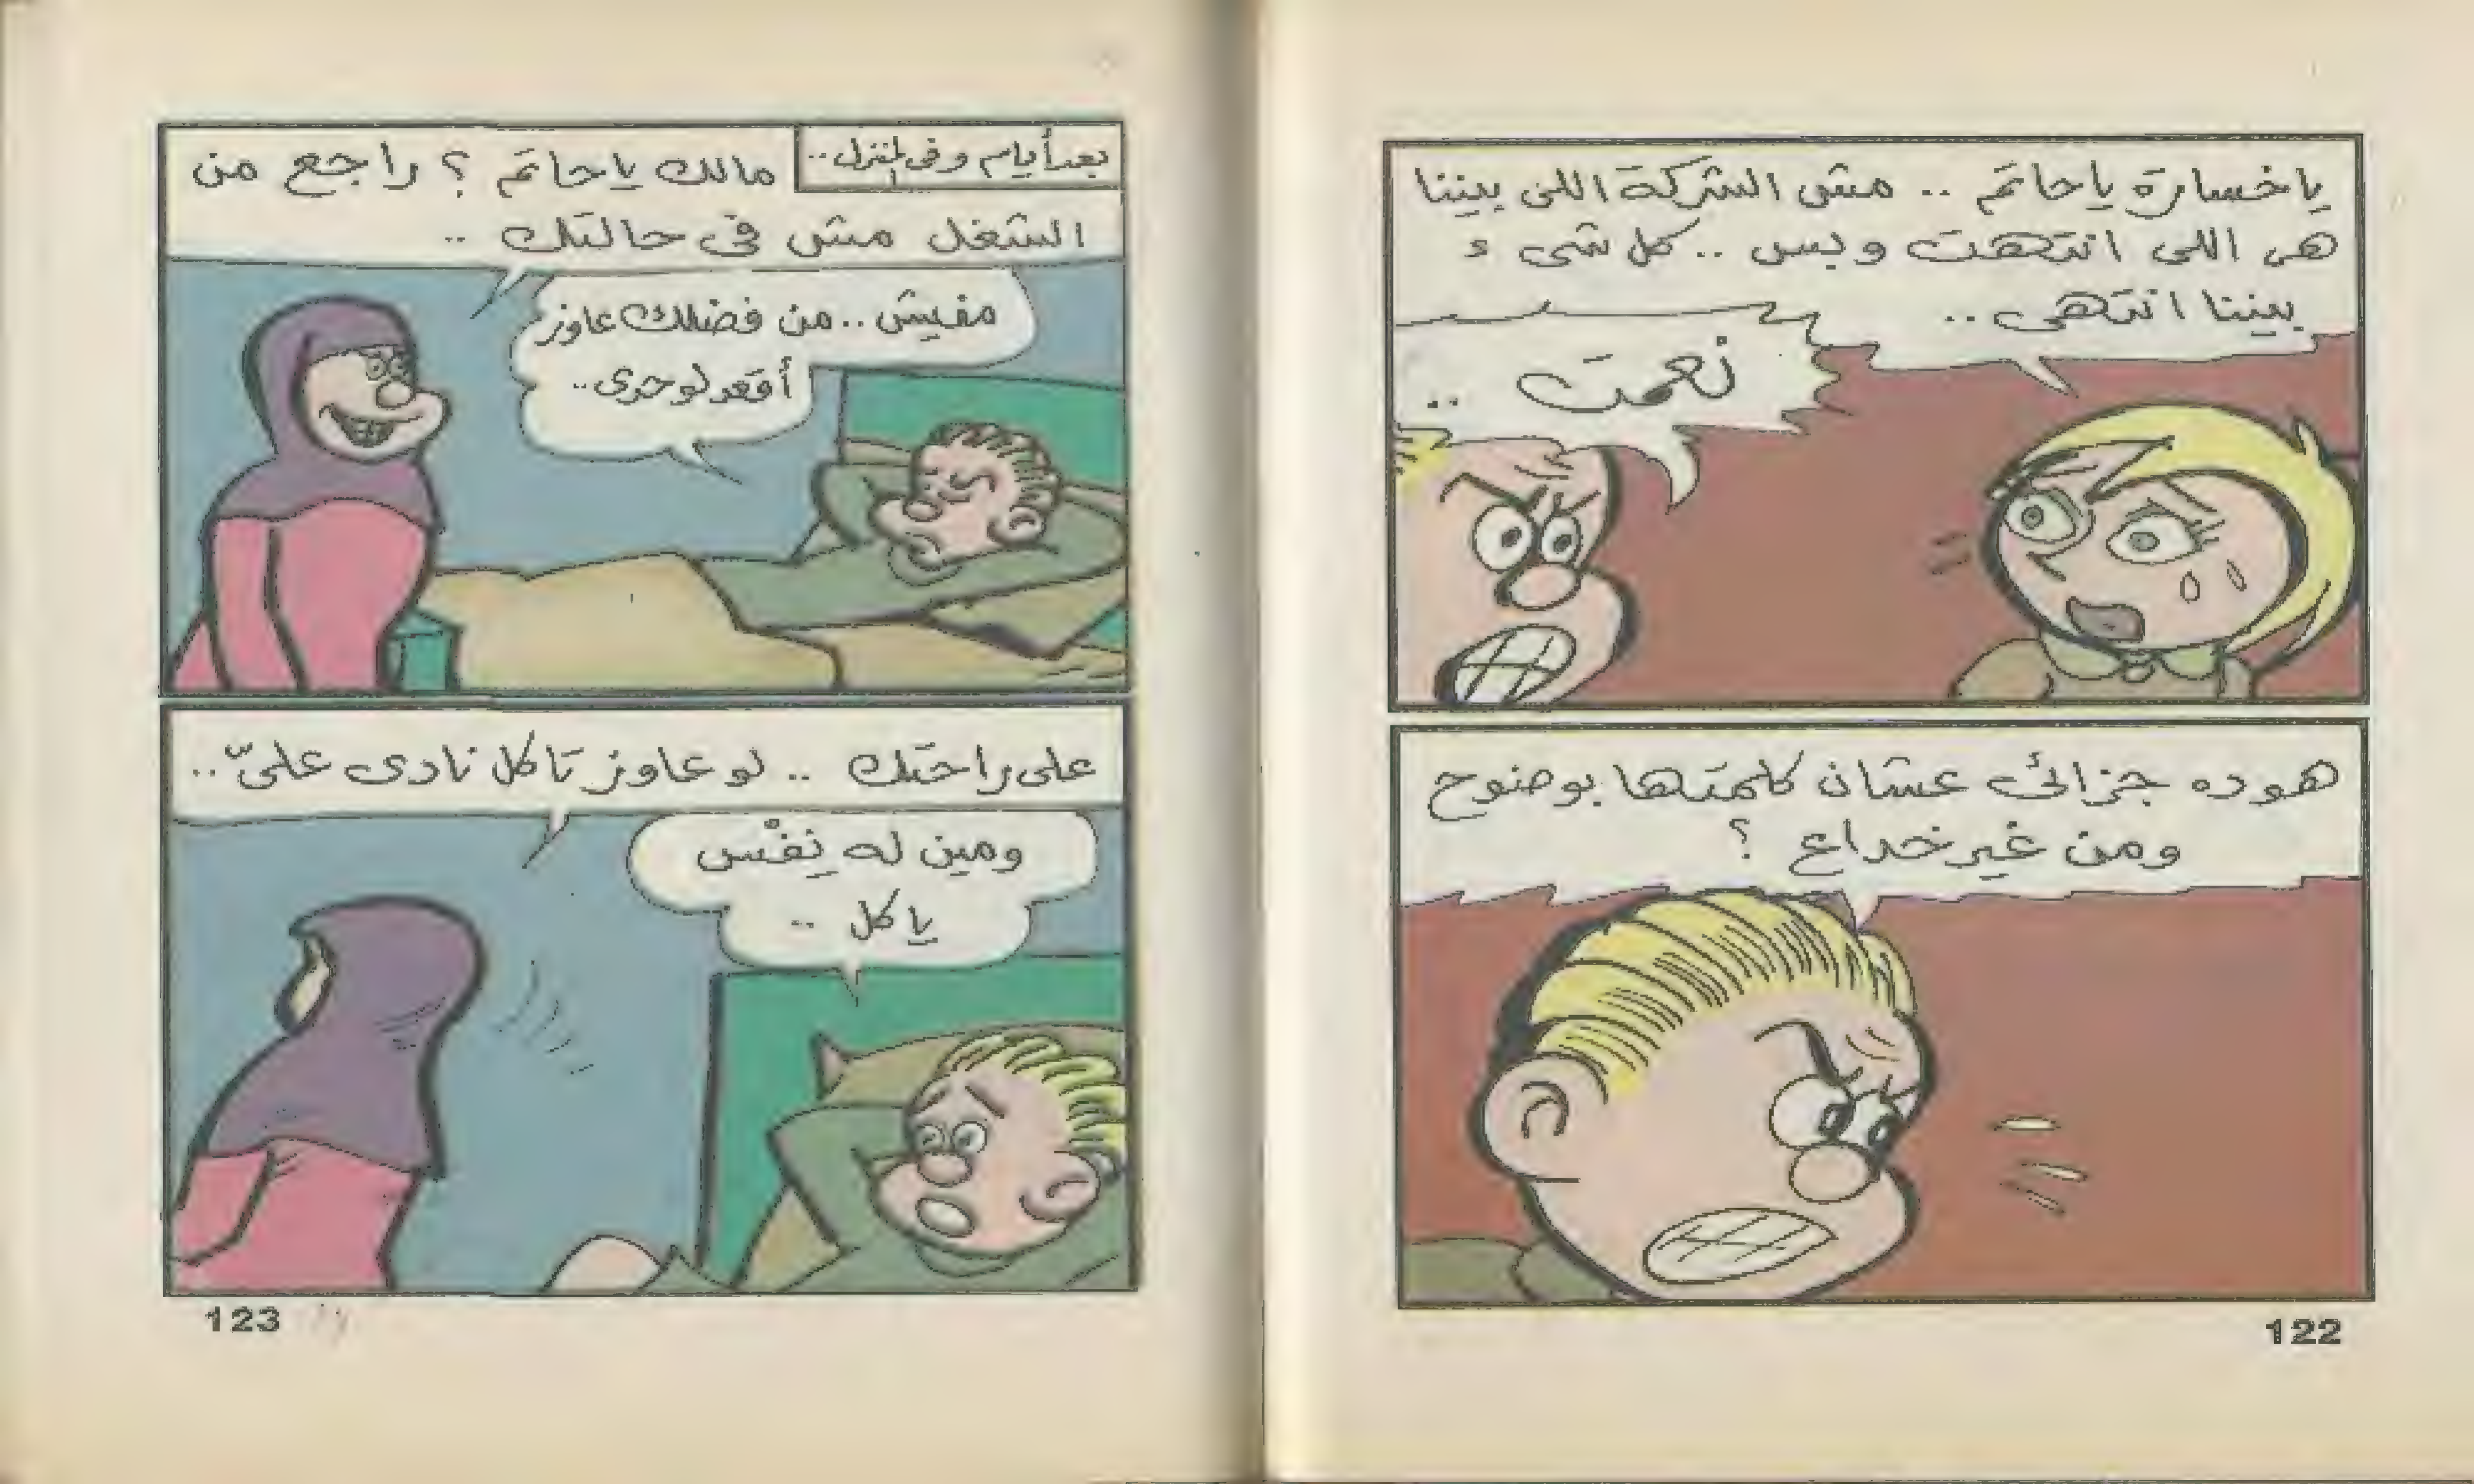 ياخسارة ياحاتم .. مش الشركة اللى بيننا
هى اللى انتهت وبس .. كل شىء
بيننا انتهى ..
نعمت ..
هو ده جزائى عشان كلمتها بوضوح
ومن غير خداع ؟
122
بعد أيام وفى المنزل ..
مالك ياحاتم ؟ راجع من
الشغل مش فى حالتك ..
مفيش .. من فضلك عاوز
أقعد لوحدى ..
على راحتك .. لو عاوز تاكل نادى علىّ ..
ومين له نِفْس
ياكل ..
123